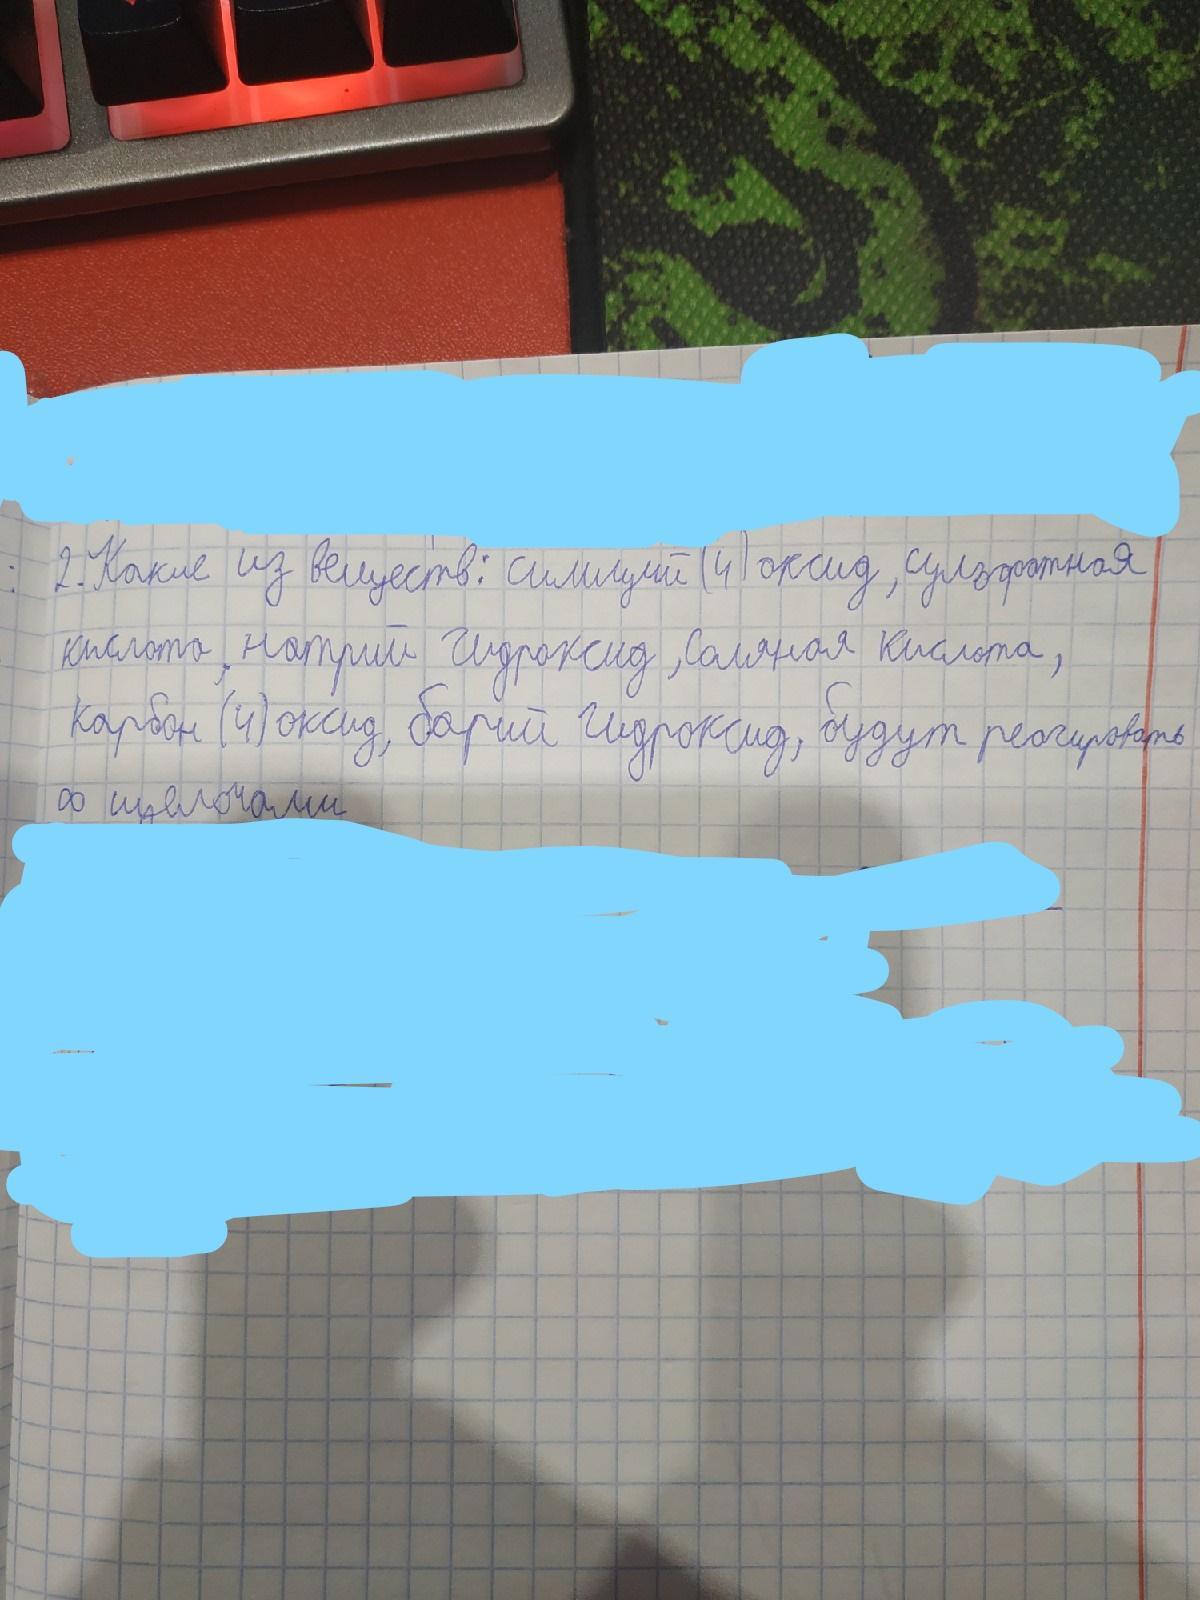 2. Какие из веществ: силиций (4) оксид, сульфатная
кислота, натрий гидроксид, соляная кислота,
карбон (4) оксид, барий гидроксид, будут реагировать
со щелочами